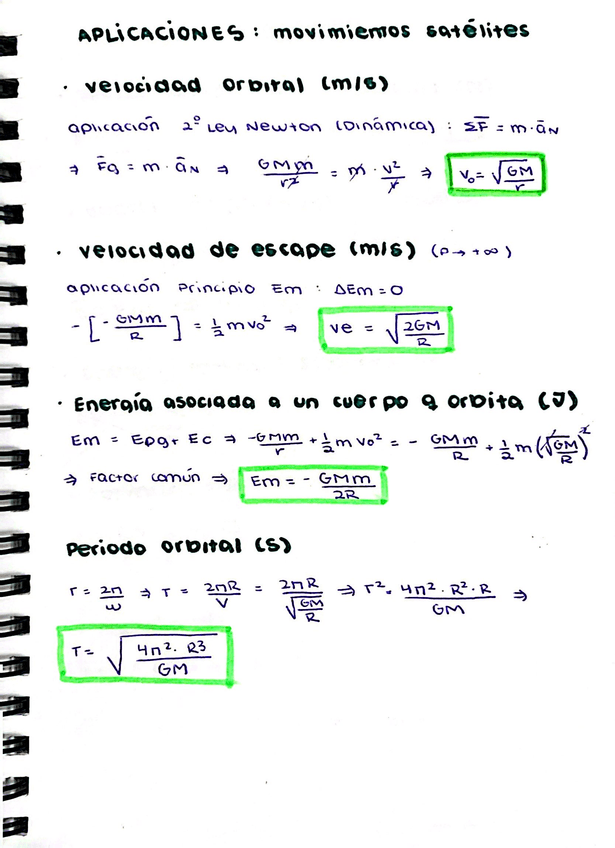 APLICACIONES: movimientos satélites
· velocidad orbital (m/s)
aplicación 2º Ley Newton (Dinámica): ΣF̄ = m·āN
⇒ F̄g = m·āN ⇒ GMm/r² = m·v²/r ⇒ v₀ = √(GM/r)
· velocidad de escape (m/s) (r→ +∞)
aplicación Principio Em: ΔEm = 0
-[-GMm/R] = ½ m v₀² ⇒ ve = √(2GM/R)
· Energía asociada a un cuerpo q orbita (J)
Em = Epg + Ec ⇒ -GMm/r + ½ m v₀² = - GMm/R + ½ m (√(GM/R))²
⇒ Factor común ⇒ Em = - GMm/2R
Periodo orbital (S)
T = 2π/ω ⇒ T = 2πR/V = 2πR/√(GM/R) ⇒ T² = 4π²·R²·R/GM ⇒
T = √(4π²·R³/GM)